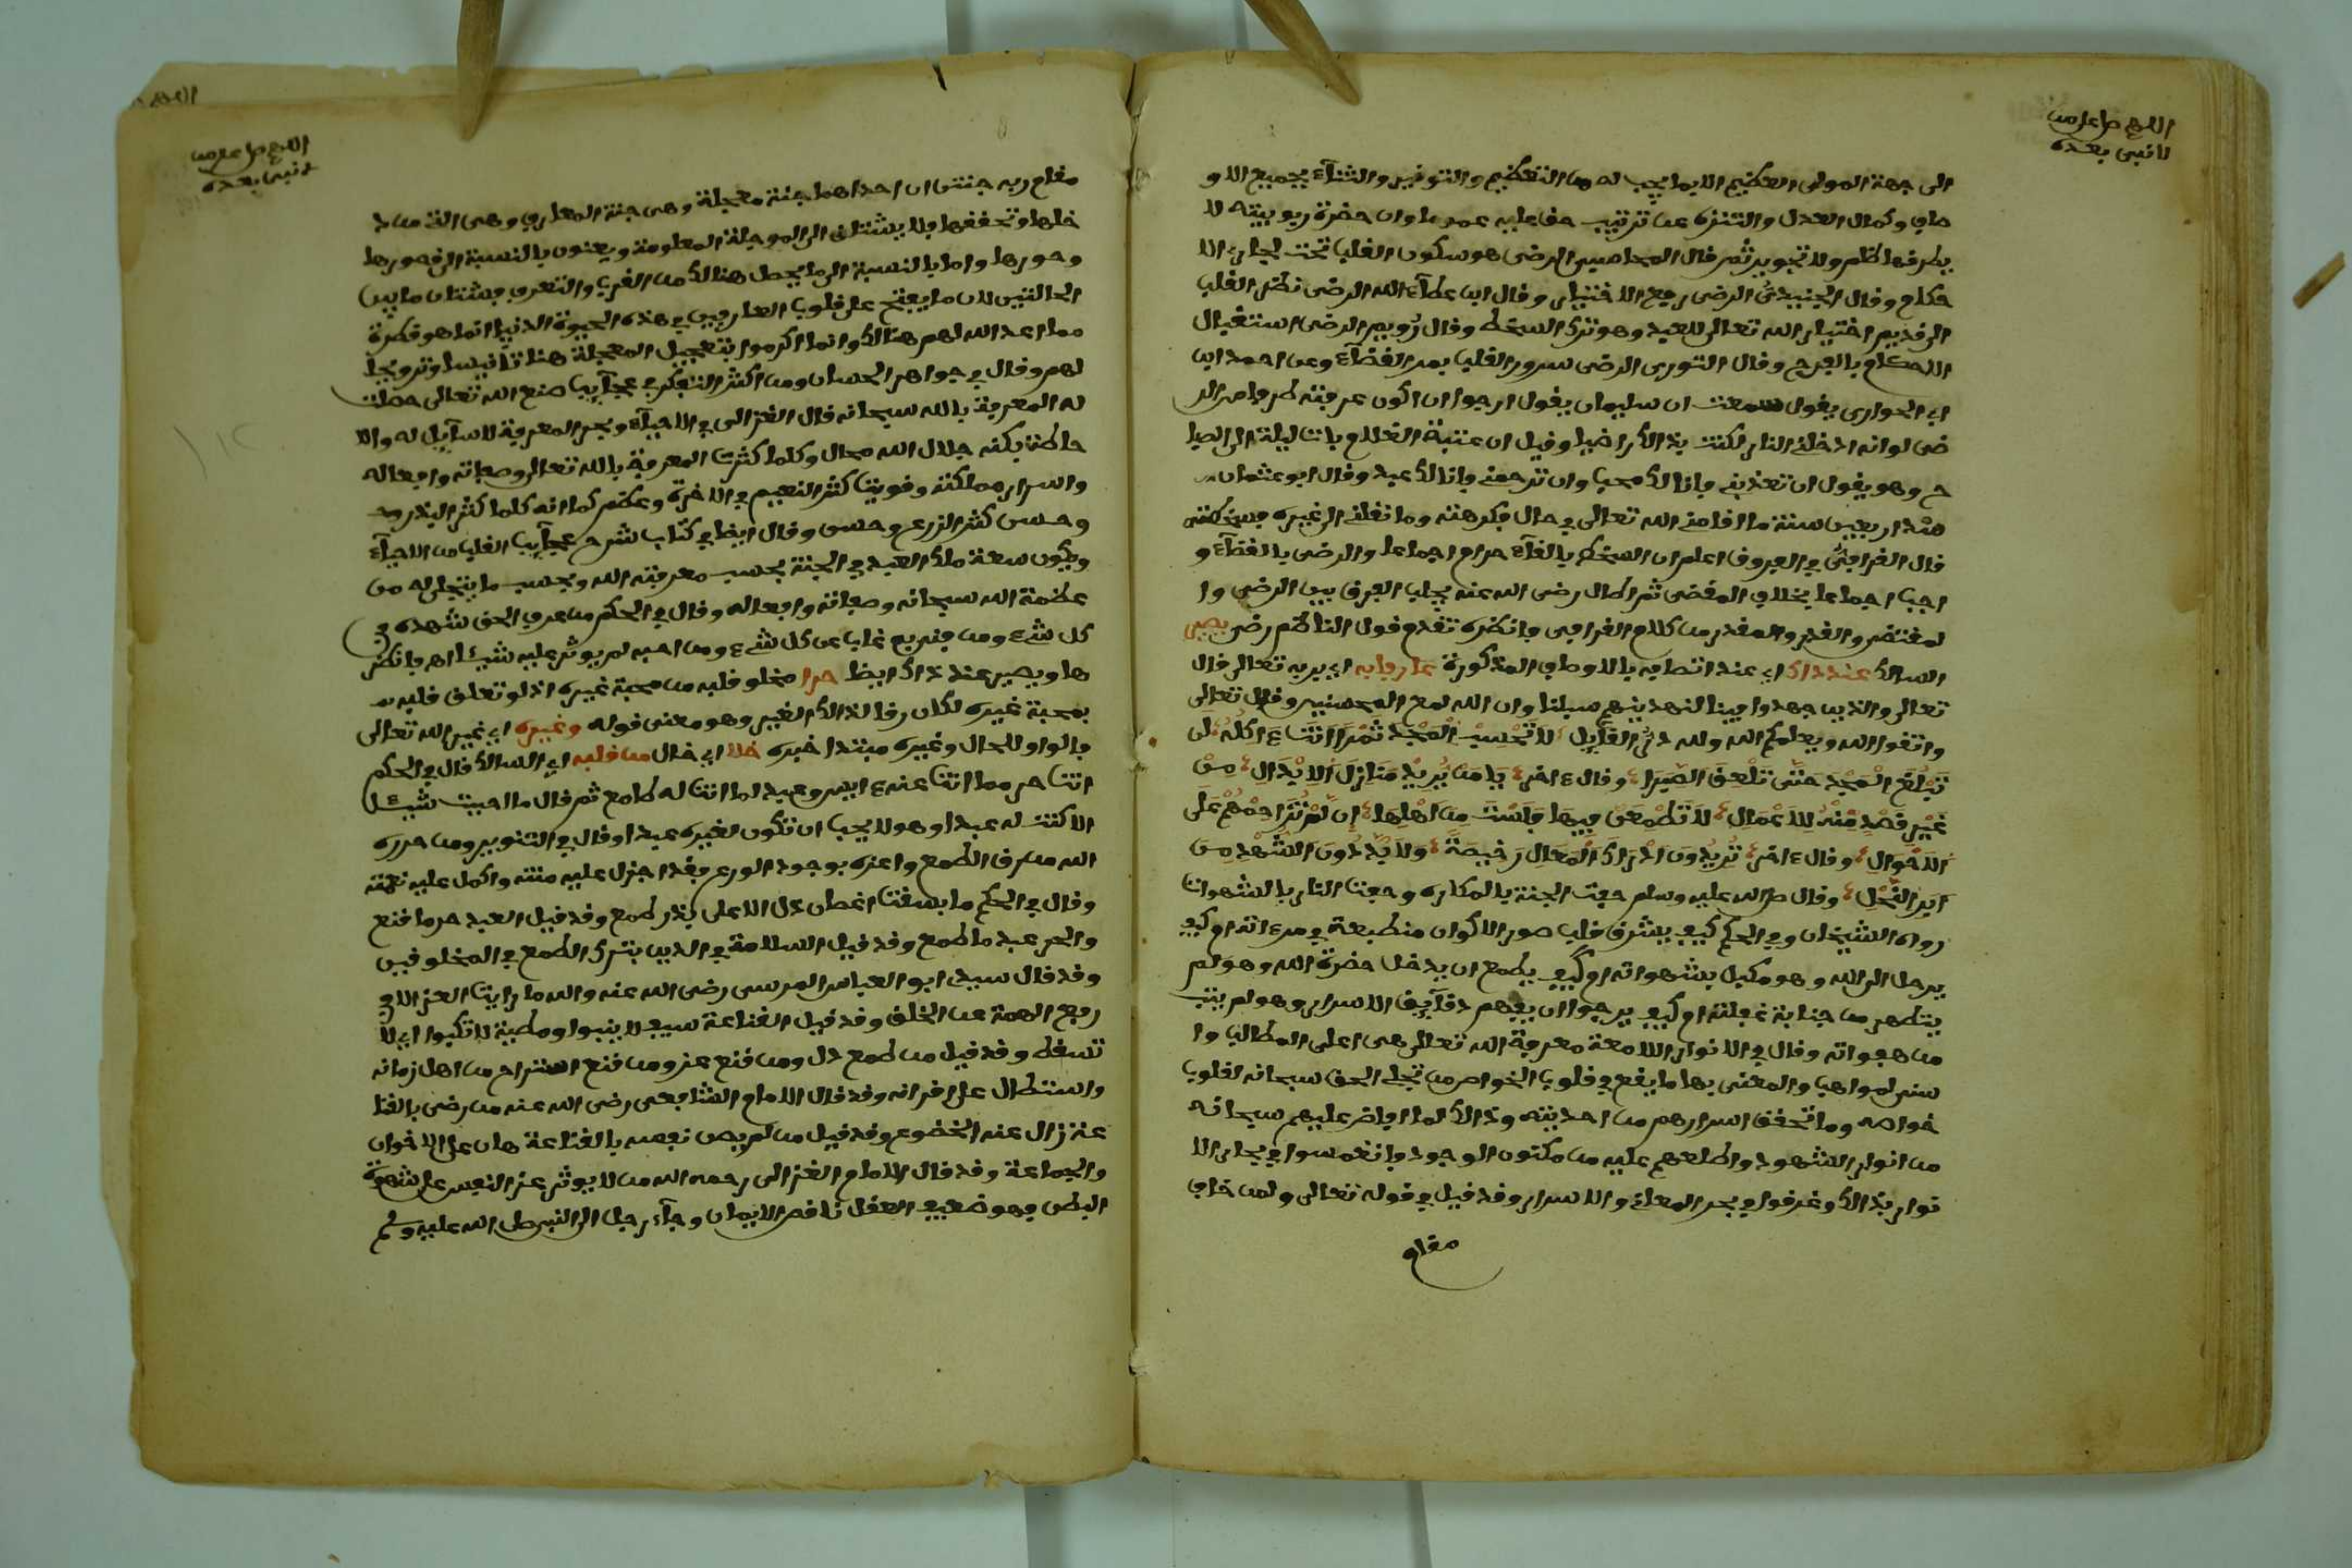 اللهم صل على من
لا نبي بعده
الى جهة المولى العظيم الا بما يجب له من التعظيم والتوفير والثناء بجميع الاو
صاف وكمال العدل والتنزه عن ترتيب حق عليه عموما وان حضرة ربوبيته لا
يطرفها ظلم ولا تجوير ثم قال المحاسبى الرضى هو سكون القلب تحت مجارى الا
حكام وقال الجنيد الرضى رفع الاختيار وقال ابن عطاء الله الرضى نظر القلب
الى قديم اختيار الله تعالى للعبد وهو ترك السخط وقال رويم الرضى استقبال
الاحكام بالفرح وقال النورى الرضى سرور القلب بمر القضاء وعن احمد ابن
ابى الحوارى يقول سمعت ان سليمان يقول ارجوا ان اكون عرفت طرفا من الر
ضى لو انه ادخلنى النار لكنت بذالك راضيا وقيل ان عتبة الغلام بات ليلة الى الصبا
ح وهو يقول ان تعذبنى فانا لك محب وان ترحمنى فانا لك عبد وقال ابو عثمان
منذ اربعين سنة ما اقامنى الله تعالى فى حال فكرهته وما نقلنى الى غيره فسخطته
قال القرافى فى الفروق اعلم ان السخط بالقضاء حرام اجماعا والرضى بالقضاء و
اجب اجماعا بخلاف المقضى ثم اطال رضى الله عنه بجلب الفرق بين الرضى وا
لمقتضى والقدر والمقدر من كلام القرافى فانظره تقدم قول الناظم رضى يصير
السالك عند ذاك اى عند اتصافه بالاوصاف المذكورة عارفا به اى بربه تعالى قال
تعالى والذين جهدوا فينا لنهدينهم سبلنا وان الله لمع المحسنين وقال تعالى
واتقوا الله ويعلمكم الله ولله در القايل لا تحسب المجد تمرا انت ءاكله لن
تبلغ المجد حتى تلعق الصبرا وقال ءاخر يا من يريد منازل الابدال من
غير قصد منه للاعمال لا تطمعن فيها فلست من اهلها ان لم تزاحمهم على
الاحوال وقال ءاخر تريدون ادراك المعال رخيصة ولا بد دون الشهد من
ابر النحل وقال صلى الله عليه وسلم حفت الجنة بالمكاره وحفت النار بالشهوات
رواه الشيخان وفى الحكم كيف يشرق قلب صور الاكوان منطبعة فى مرءاته ام كيف
يرحل الى الله وهو مكبل بشهواته ام كيف يطمع ان يدخل حضرة الله وهو لم
يتطهر من جنابة غفلته ام كيف يرجوا ان يفهم دقائق الاسرار وهو لم يتب
من هفواته وقال فى الانوار اللامعة معرفة الله تعالى هى اعلى المطالب وا
سنى المواهب والمعنى بها ما يقع فى قلوب الخواص من تجلى الحق سبحانه لقلوب
خواصه وما تحقق اسرارهم من احديته وذالك لما افاض عليهم سبحانه
من انوار الشهود واطلعهم عليه من مكنون الوجود فانغمسوا فى بحار الا
نوار بذالك وغرقوا فى بحر المعانى والاسرار وقد قيل فى قوله تعالى ولمن خاف
مقام
اللهم صل على من
لا نبى بعده
مقام ربه جنتن ان احداهما جنة معجلة وهى جنة المعارف وهى التى من د
خلها وتحققها فلا يشتاق الى الموجلة المعلومة ويعنون بالنسبة الى قصورها
وحورها واما بالنسبة الى ما يحصل هنالك من القرب والتعرف فشتان ما بين
الحالتين لان ما يفتح على قلوب العارفين فى هذه الحيوة الدنيا انما هو قطرة
مما اعد الله لهم هنالك وانما اكرموا بتعجيل المعجلة هنا تانيسا وترويجا
لهم وقال فى جواهر الحسان ومن اكثر التفكر فى عجايب صنع الله تعالى حصلت
له المعرفة بالله سبحانه قال الغزالى فى الاحياء وبحر المعرفة لا ساحل له والا
حاطة بكنه جلال الله محال وكلما كثرت المعرفة بالله تعالى وصفاته وافعاله
واسرار مملكته وقويت كثر النعيم فى الاخرة وعظم كما انه كلما كثر البذر
وحسن كثر الزرع وحسن وقال ايضا فى كتاب شرح عجايب القلب من الاحياء
وتكون سعة ملك العبد فى الجنة بحسب معرفته الله وبحسب ما يتجلى له من
عظمة الله سبحانه وصفاته وافعاله وقال فى الحكم من عرف الحق شهده فى
كل شىء ومن فنى به غاب عن كل شىء ومن احبه لم يوثر عليه شيئا اهـ فانظر
ها ويصير عند ذاك ايضا حرا مخلو قلبه من محبة غيره اذ لو تعلق قلبه
بمحبة غيره لكان رقا لذالك الغير وهو معنى قوله وغيره اى غير الله تعالى
فالواو للحال وغيره مبتدا خبره خلا اى خال من قلبه اى السالك قال فى الحكم
انت حر مما انت عنه ءايس وعبد لما انت له طامع ثم قال ما احببت شيئا
الا كنت له عبدا وهو لا يحب ان تكون لغيره عبدا وقال فى التنوير ومن حرره
الله من رق الطمع واعزه بوجود الورع فقد اجزل عليه منته واكمل عليه نعمته
وقال فى الحكم ما بسقت اغصان ذل الا على بذر طمع وقد قيل العبد حر ما قنع
والحر عبد ما طمع وقد قيل السلامة فى الدين بترك الطمع فى المخلوقين
وقد قال سيدى ابو العباس المرسى رضى الله عنه والله ما رايت العز الا فى
رفع الهمة عن الخلق وقد قيل القناعة سيف لا ينبوا ومطية لا تكبوا اى لا
تسقط وقد قيل من طمع ذل ومن قنع عز ومن قنع استراح من اهل زمانه
واستطال على اقرانه وقد قال الامام الشافعى رضى الله عنه من رضى بالقنا
عة زال عنه الخضوع وقد قيل من لم يصن نفسه بالقناعة هان على الاخوان
والجماعة وقد قال الامام الغزالى رحمه الله من لا يوثر عز النفس على شهوة
البطن فهو ضعيف العقل ناقص الايمان وجاء رجل الى النبى صلى الله عليه وسلم